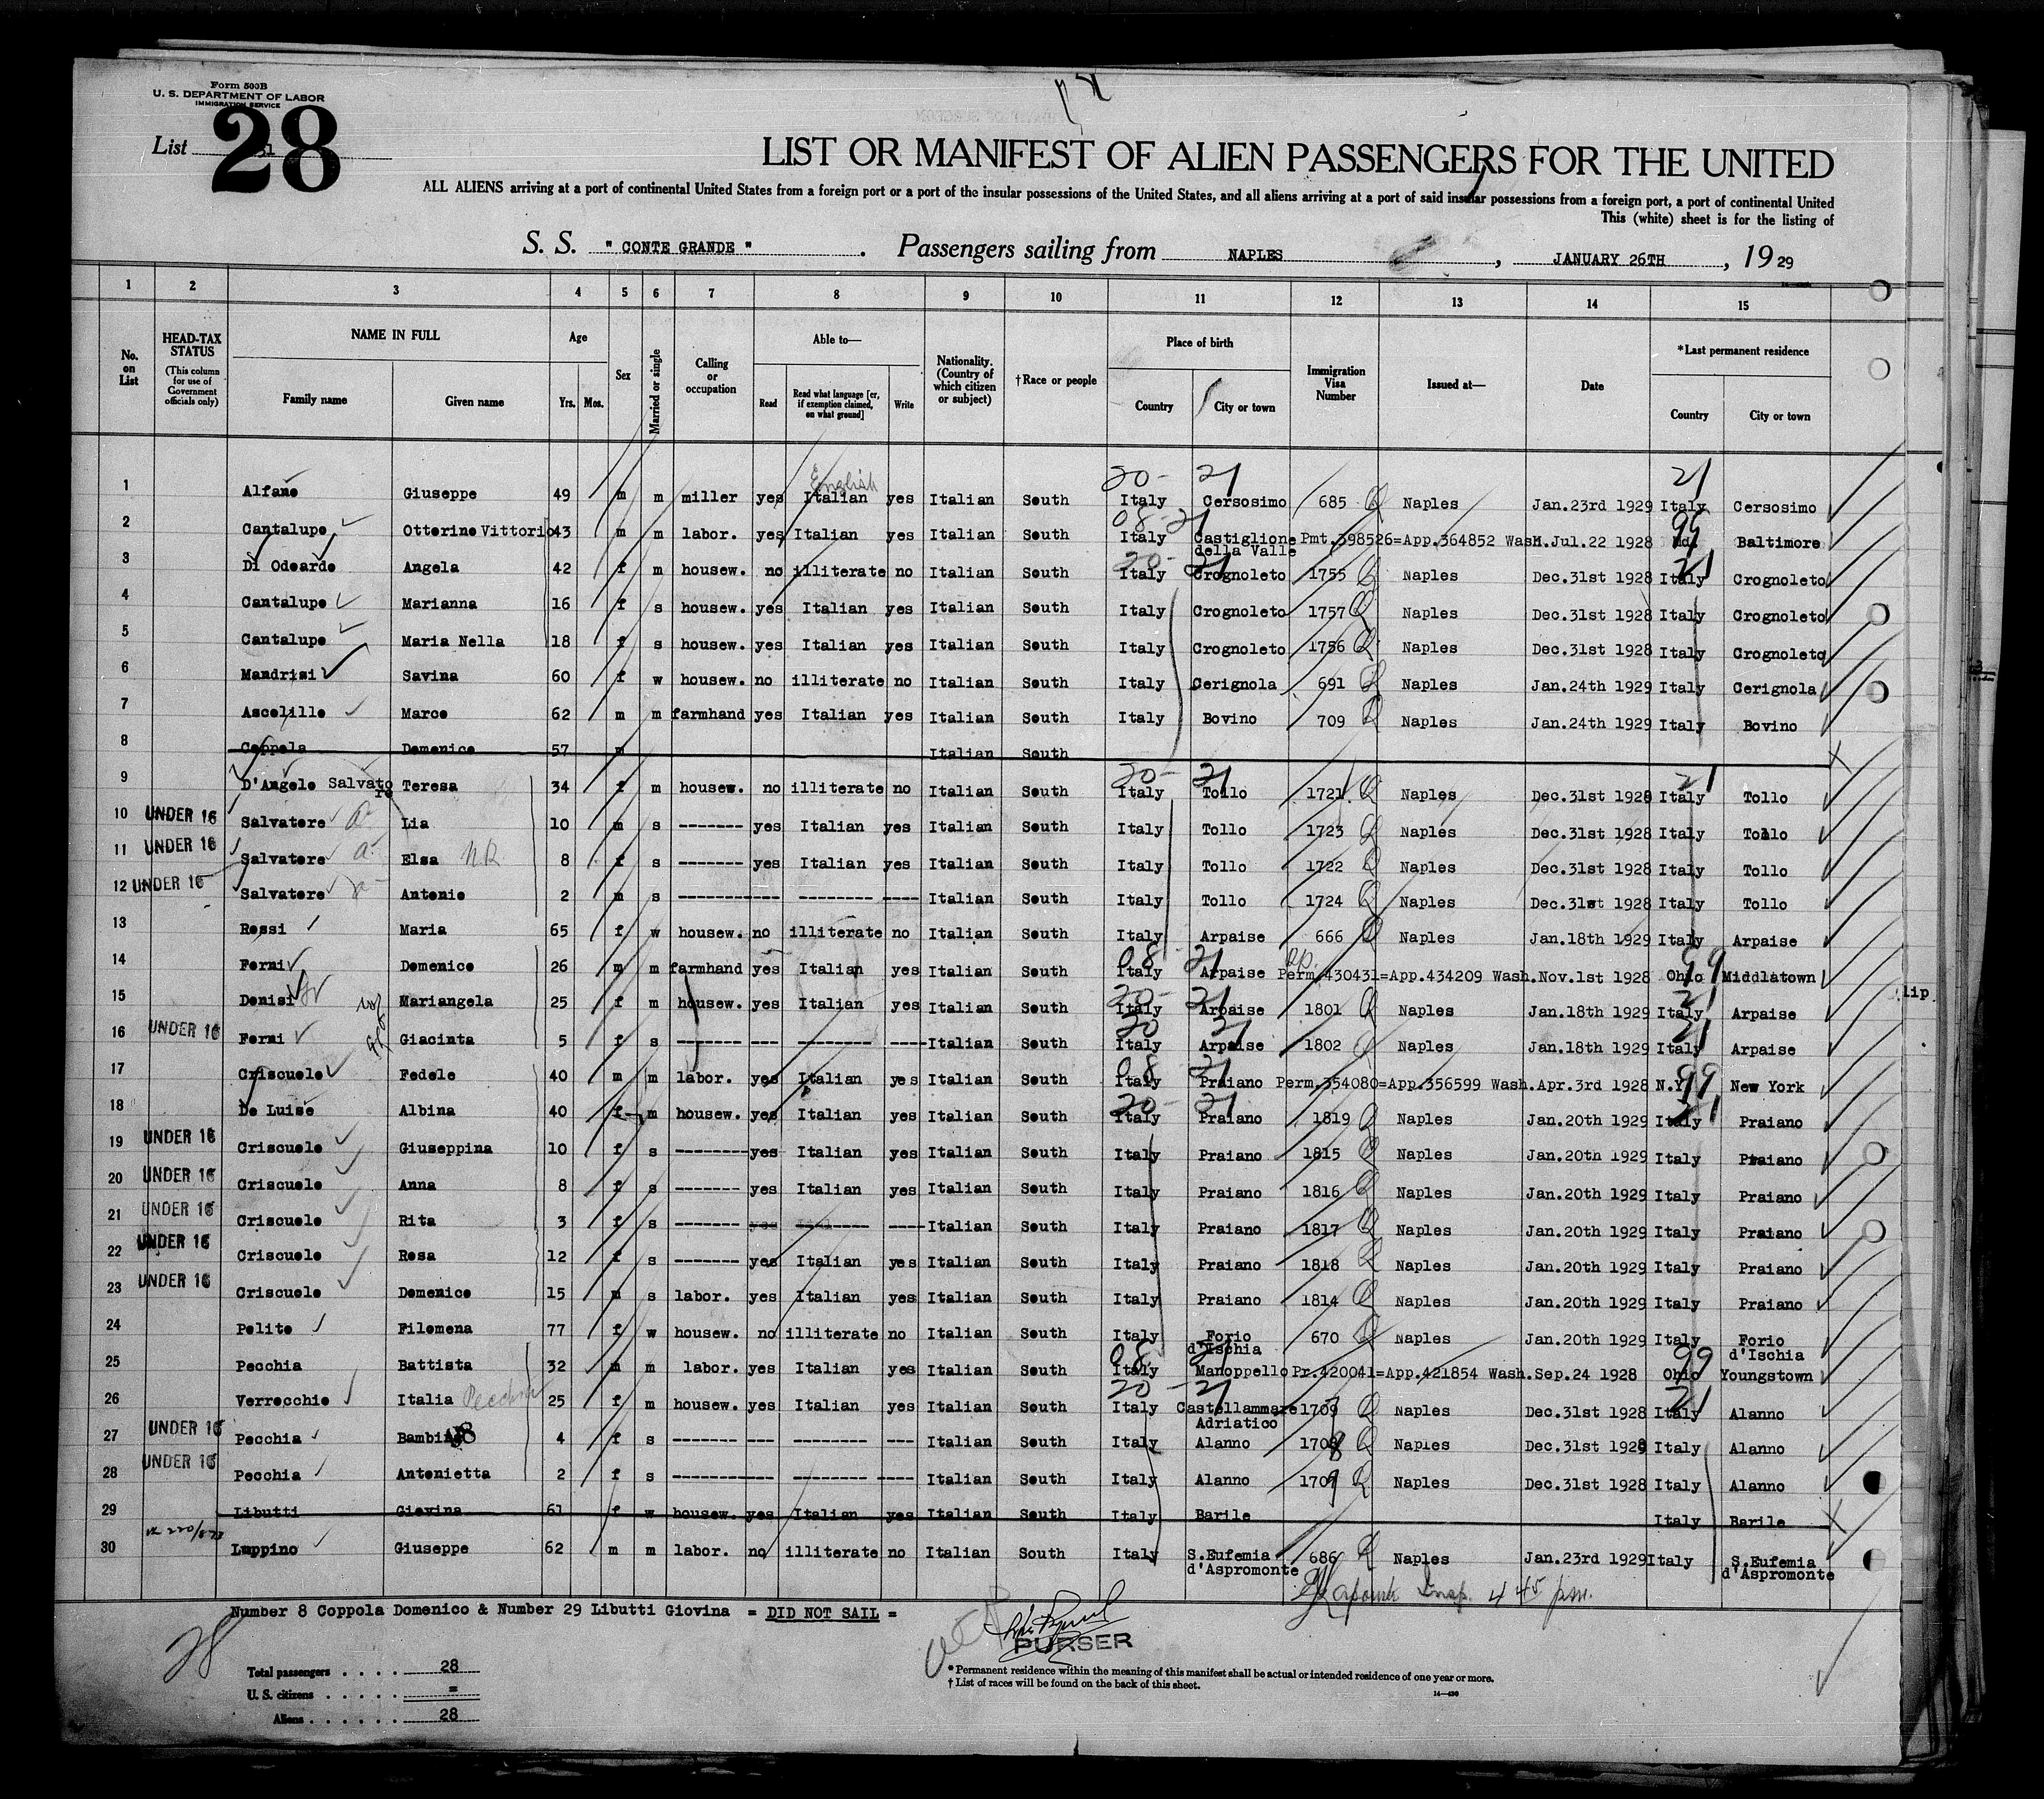 Form 500B
U. S. DEPARTMENT OF LABOR
IMMIGRATION SERVICE
List 28
LIST OR MANIFEST OF ALIEN PASSENGERS FOR THE UNITED
ALL ALIENS arriving at a port of continental United States from a foreign port or a port of the insular possessions of the United States, and all aliens arriving at a port of said insular possessions from a foreign port, a port of continental United
This (white) sheet is for the listing of
S. S. " CONTE GRANDE ". Passengers sailing from NAPLES, JANUARY 26TH, 1929
1 2 3 4 5 6 7 8 9 10 11 12 13 14 15
No. on List
HEAD-TAX STATUS
(This column for use of Government officials only)
NAME IN FULL
Family name Given name
Age
Yrs. Mos.
Sex
Married or single
Calling or occupation
Able to—
Read
Read what language [or, if exemption claimed, on what ground]
Write
Nationality. (Country of which citizen or subject)
†Race or people
Place of birth
Country City or town
Immigration Visa Number
Issued at—
Date
*Last permanent residence
Country City or town
English
20- 21 21
1 Alfano Giuseppe 49 m m miller yes Italian yes Italian South Italy Cersosimo 685 Naples Jan.23rd 1929 Italy Cersosimo
08-21 99
2 Cantalupo Otterino Vittorio 43 m m labor. yes Italian yes Italian South Italy Castiglione della Valle Pmt.398526=App.364852 Wash.Jul.22 1928 Md. Baltimore
20- 21 21
3 Di Odoardo Angela 42 f m housew. no illiterate no Italian South Italy Crognoleto 1755 Naples Dec.31st 1928 Italy Crognoleto
4 Cantalupo Marianna 16 f s housew. yes Italian yes Italian South Italy Crognoleto 1757 Naples Dec.31st 1928 Italy Crognoleto
5 Cantalupo Maria Nella 18 f s housew. yes Italian yes Italian South Italy Crognoleto 1756 Naples Dec.31st 1928 Italy Crognoleto
6 Mandrisi Savina 60 f w housew. no illiterate no Italian South Italy Cerignola 691 Naples Jan.24th 1929 Italy Cerignola
7 Ascolillo Marco 62 m m farmhand yes Italian yes Italian South Italy Bovino 709 Naples Jan.24th 1929 Italy Bovino
8 Coppola Domenico 57 m Italian South
20- 21 21
9 D'Angelo Salvatore Teresa 34 f m housew. no illiterate no Italian South Italy Tollo 1721 Naples Dec.31st 1928 Italy Tollo
10 UNDER 16 Salvatore Lia 10 m s ------- yes Italian yes Italian South Italy Tollo 1723 Naples Dec.31st 1928 Italy Tollo
11 UNDER 16 Salvatore Elsa N.R. 8 f s ------- yes Italian yes Italian South Italy Tollo 1722 Naples Dec.31st 1928 Italy Tollo
12 UNDER 16 Salvatore Antonio 2 m s ------- --- -------- ---- Italian South Italy Tollo 1724 Naples Dec.31st 1928 Italy Tollo
13 Rossi Maria 65 f w housew. no illiterate no Italian South Italy Arpaise 666 Naples Jan.18th 1929 Italy Arpaise
08 21 99
14 Forni Domenico 26 m m farmhand yes Italian yes Italian South Italy Arpaise Perm.430431=App.434209 Wash.Nov.1st 1928 Ohio Middlatown
20- 21 21
15 Denisi Mariangela 25 f m housew. yes Italian yes Italian South Italy Arpaise 1801 Naples Jan.18th 1929 Italy Arpaise
20 21 21
16 UNDER 16 Forni Giacinta 5 f s -------- --- -------- ---- Italian South Italy Arpaise 1802 Naples Jan.18th 1929 Italy Arpaise
08 21 99
17 Criscuolo Fedele 40 m m labor. yes Italian yes Italian South Italy Praiano Perm.354080=App.356599 Wash.Apr.3rd 1928 N.Y. New York
20- 21 21
18 De Luise Albina 40 f m housew. yes Italian yes Italian South Italy Praiano 1819 Naples Jan.20th 1929 Italy Praiano
19 UNDER 16 Criscuolo Giuseppina 10 f s -------- yes Italian yes Italian South Italy Praiano 1815 Naples Jan.20th 1929 Italy Praiano
20 UNDER 16 Criscuolo Anna 8 f s ------- yes Italian yes Italian South Italy Praiano 1816 Naples Jan.20th 1929 Italy Praiano
21 UNDER 16 Criscuolo Rita 3 f s ------- yes -------- ---- Italian South Italy Praiano 1817 Naples Jan.20th 1929 Italy Praiano
22 UNDER 16 Criscuolo Rosa 12 f s ------- yes Italian yes Italian South Italy Praiano 1818 Naples Jan.20th 1929 Italy Praiano
23 UNDER 16 Criscuolo Domenico 15 m s labor. yes Italian yes Italian South Italy Praiano 1814 Naples Jan.20th 1929 Italy Praiano
24 Polito Filomena 77 f w housew. no illiterate no Italian South Italy Forio d'Ischia 670 Naples Jan.20th 1929 Italy Forio d'Ischia
08 21 99
25 Pecchia Battista 32 m m labor. yes Italian yes Italian South Italy Manoppello Pr.420041=App.421854 Wash.Sep.24 1928 Ohio Youngstown
20 - 21 21
26 Verrocchio Italia Pecchia 25 f m housew. yes Italian yes Italian South Italy Castellammare Adriatico 1709 Naples Dec.31st 1928 Italy Alanno
27 UNDER 16 Pecchia Bambina 4 f s ------- --- -------- --- Italian South Italy Alanno 1708 Naples Dec.31st 1928 Italy Alanno
28 UNDER 16 Pecchia Antonietta 2 f s ------- --- -------- ---- Italian South Italy Alanno 1707 Naples Dec.31st 1928 Italy Alanno
29 Libutti Giovina 61 f w housew. yes Italian yes Italian South Italy Barile Italy Barile
30 Luppino Giuseppe 62 m m labor. no illiterate no Italian South Italy S.Eufemia d'Aspromonte 686 Naples Jan.23rd 1929 Italy S.Eufemia d'Aspromonte
Insp. 4 45 pm.
Number 8 Coppola Domenico & Number 29 Libutti Giovina = DID NOT SAIL =
28
PURSER
Total passengers . . . . 28
U. S. citizens . . . . . =
Aliens . . . . . . 28
* Permanent residence within the meaning of this manifest shall be actual or intended residence of one year or more.
† List of races will be found on the back of this sheet.
14—430